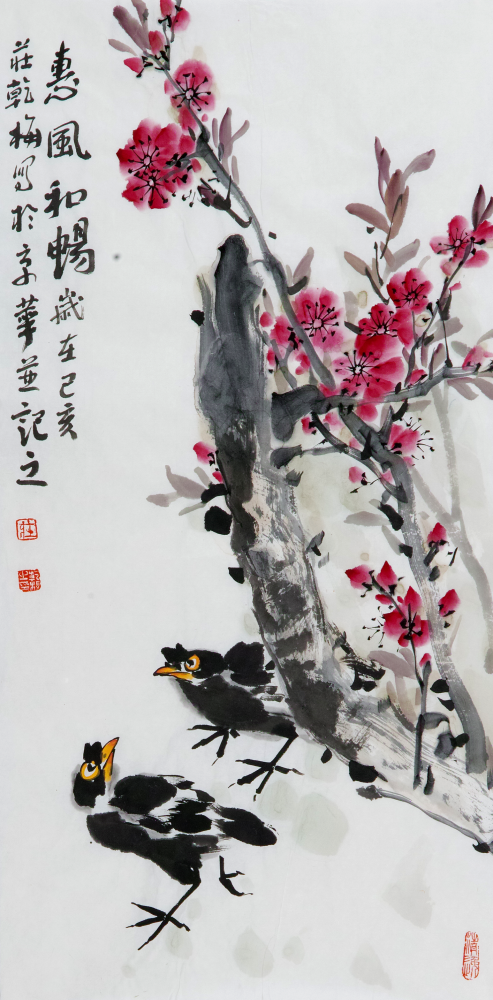 惠風和暢 歲在己亥
莊乾梅寫於京華並記之